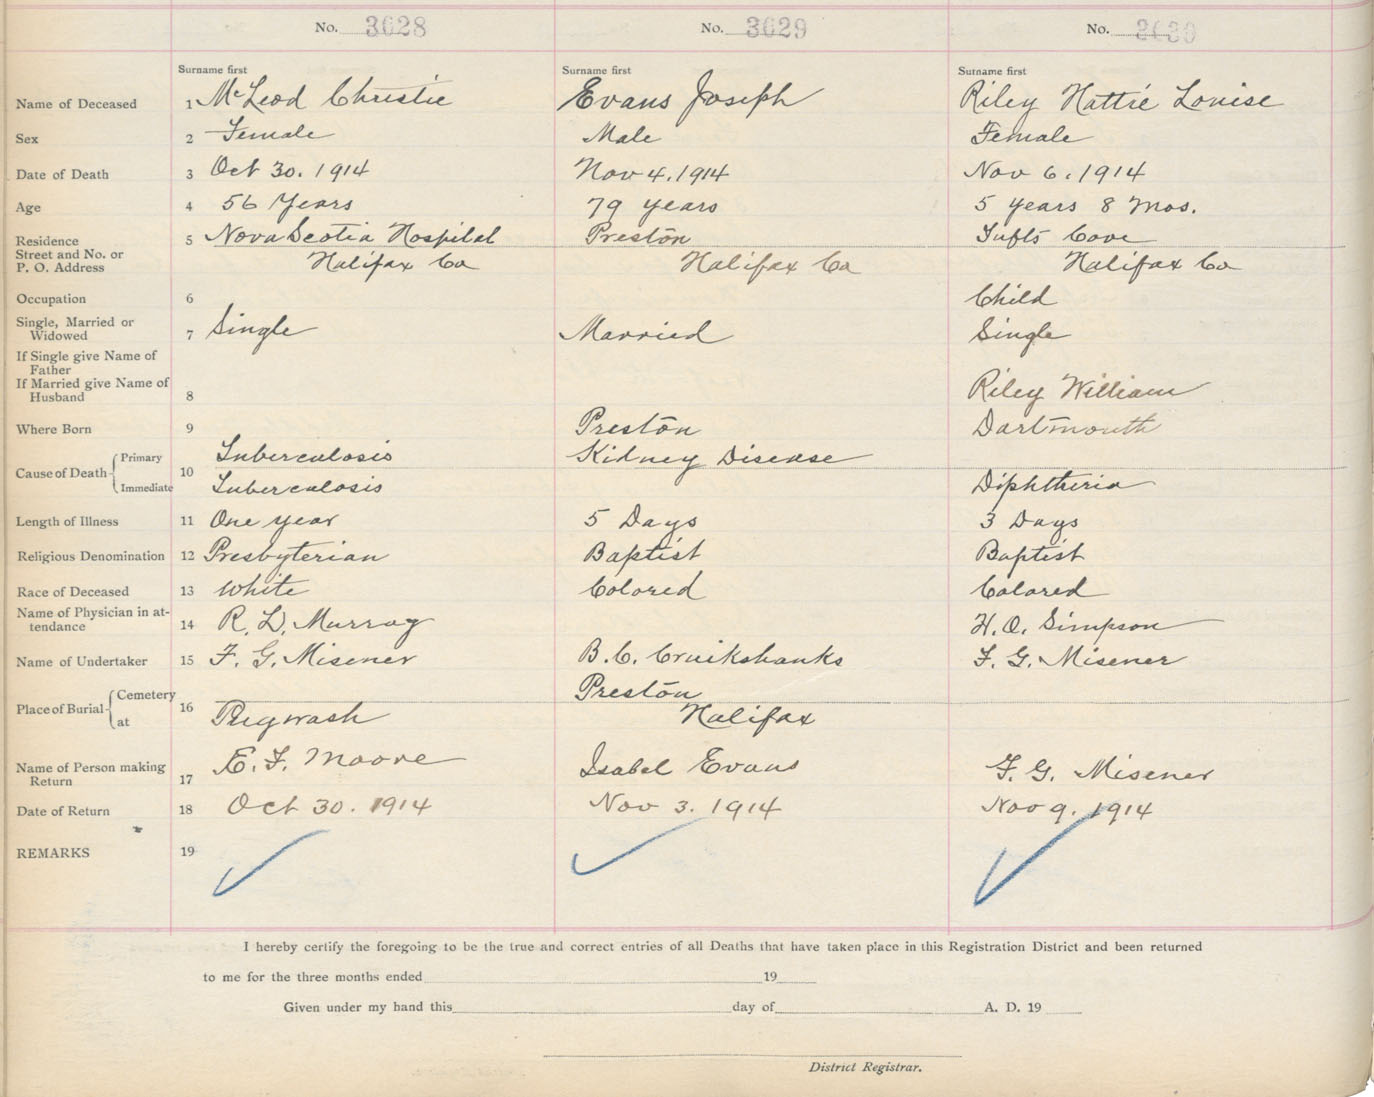 No. 3028 No. 3029 No. 3030
Surname first Surname first Surname first
Name of Deceased 1 McLeod Christie Evans Joseph Riley Hattie Louise
Sex 2 Female Male Female
Date of Death 3 Oct 30. 1914 Nov 4. 1914 Nov 6. 1914
Age 4 56 Years 79 years 5 years 8 Mos.
Residence 5 Nova Scotia Hospital Preston Tufts Cove
Street and No. or
P. O. Address Halifax Co Halifax Co Halifax Co
Occupation 6 Child
Single, Married or
Widowed 7 Single Married Single
If Single give Name of
Father
If Married give Name of
Husband 8 Riley William
Where Born 9 Preston Dartmouth
Cause of Death 10 Primary Tuberculosis Kidney Disease
Immediate Tuberculosis Diphtheria
Length of Illness 11 One year 5 Days 3 Days
Religious Denomination 12 Presbyterian Baptist Baptist
Race of Deceased 13 White Colored Colored
Name of Physician in at-
tendance 14 R. D. Murray H. O. Simpson
Name of Undertaker 15 F. G. Misener B. C. Cruikshanks F. G. Misener
Place of Burial 16 Cemetery Preston
at Pugwash Halifax
Name of Person making
Return 17 E. F. Moore Isabel Evans F. G. Misener
Date of Return 18 Oct 30. 1914 Nov 3. 1914 Nov 9. 1914
REMARKS 19
I hereby certify the foregoing to be the true and correct entries of all Deaths that have taken place in this Registration District and been returned
to me for the three months ended 19
Given under my hand this day of A. D. 19
District Registrar.